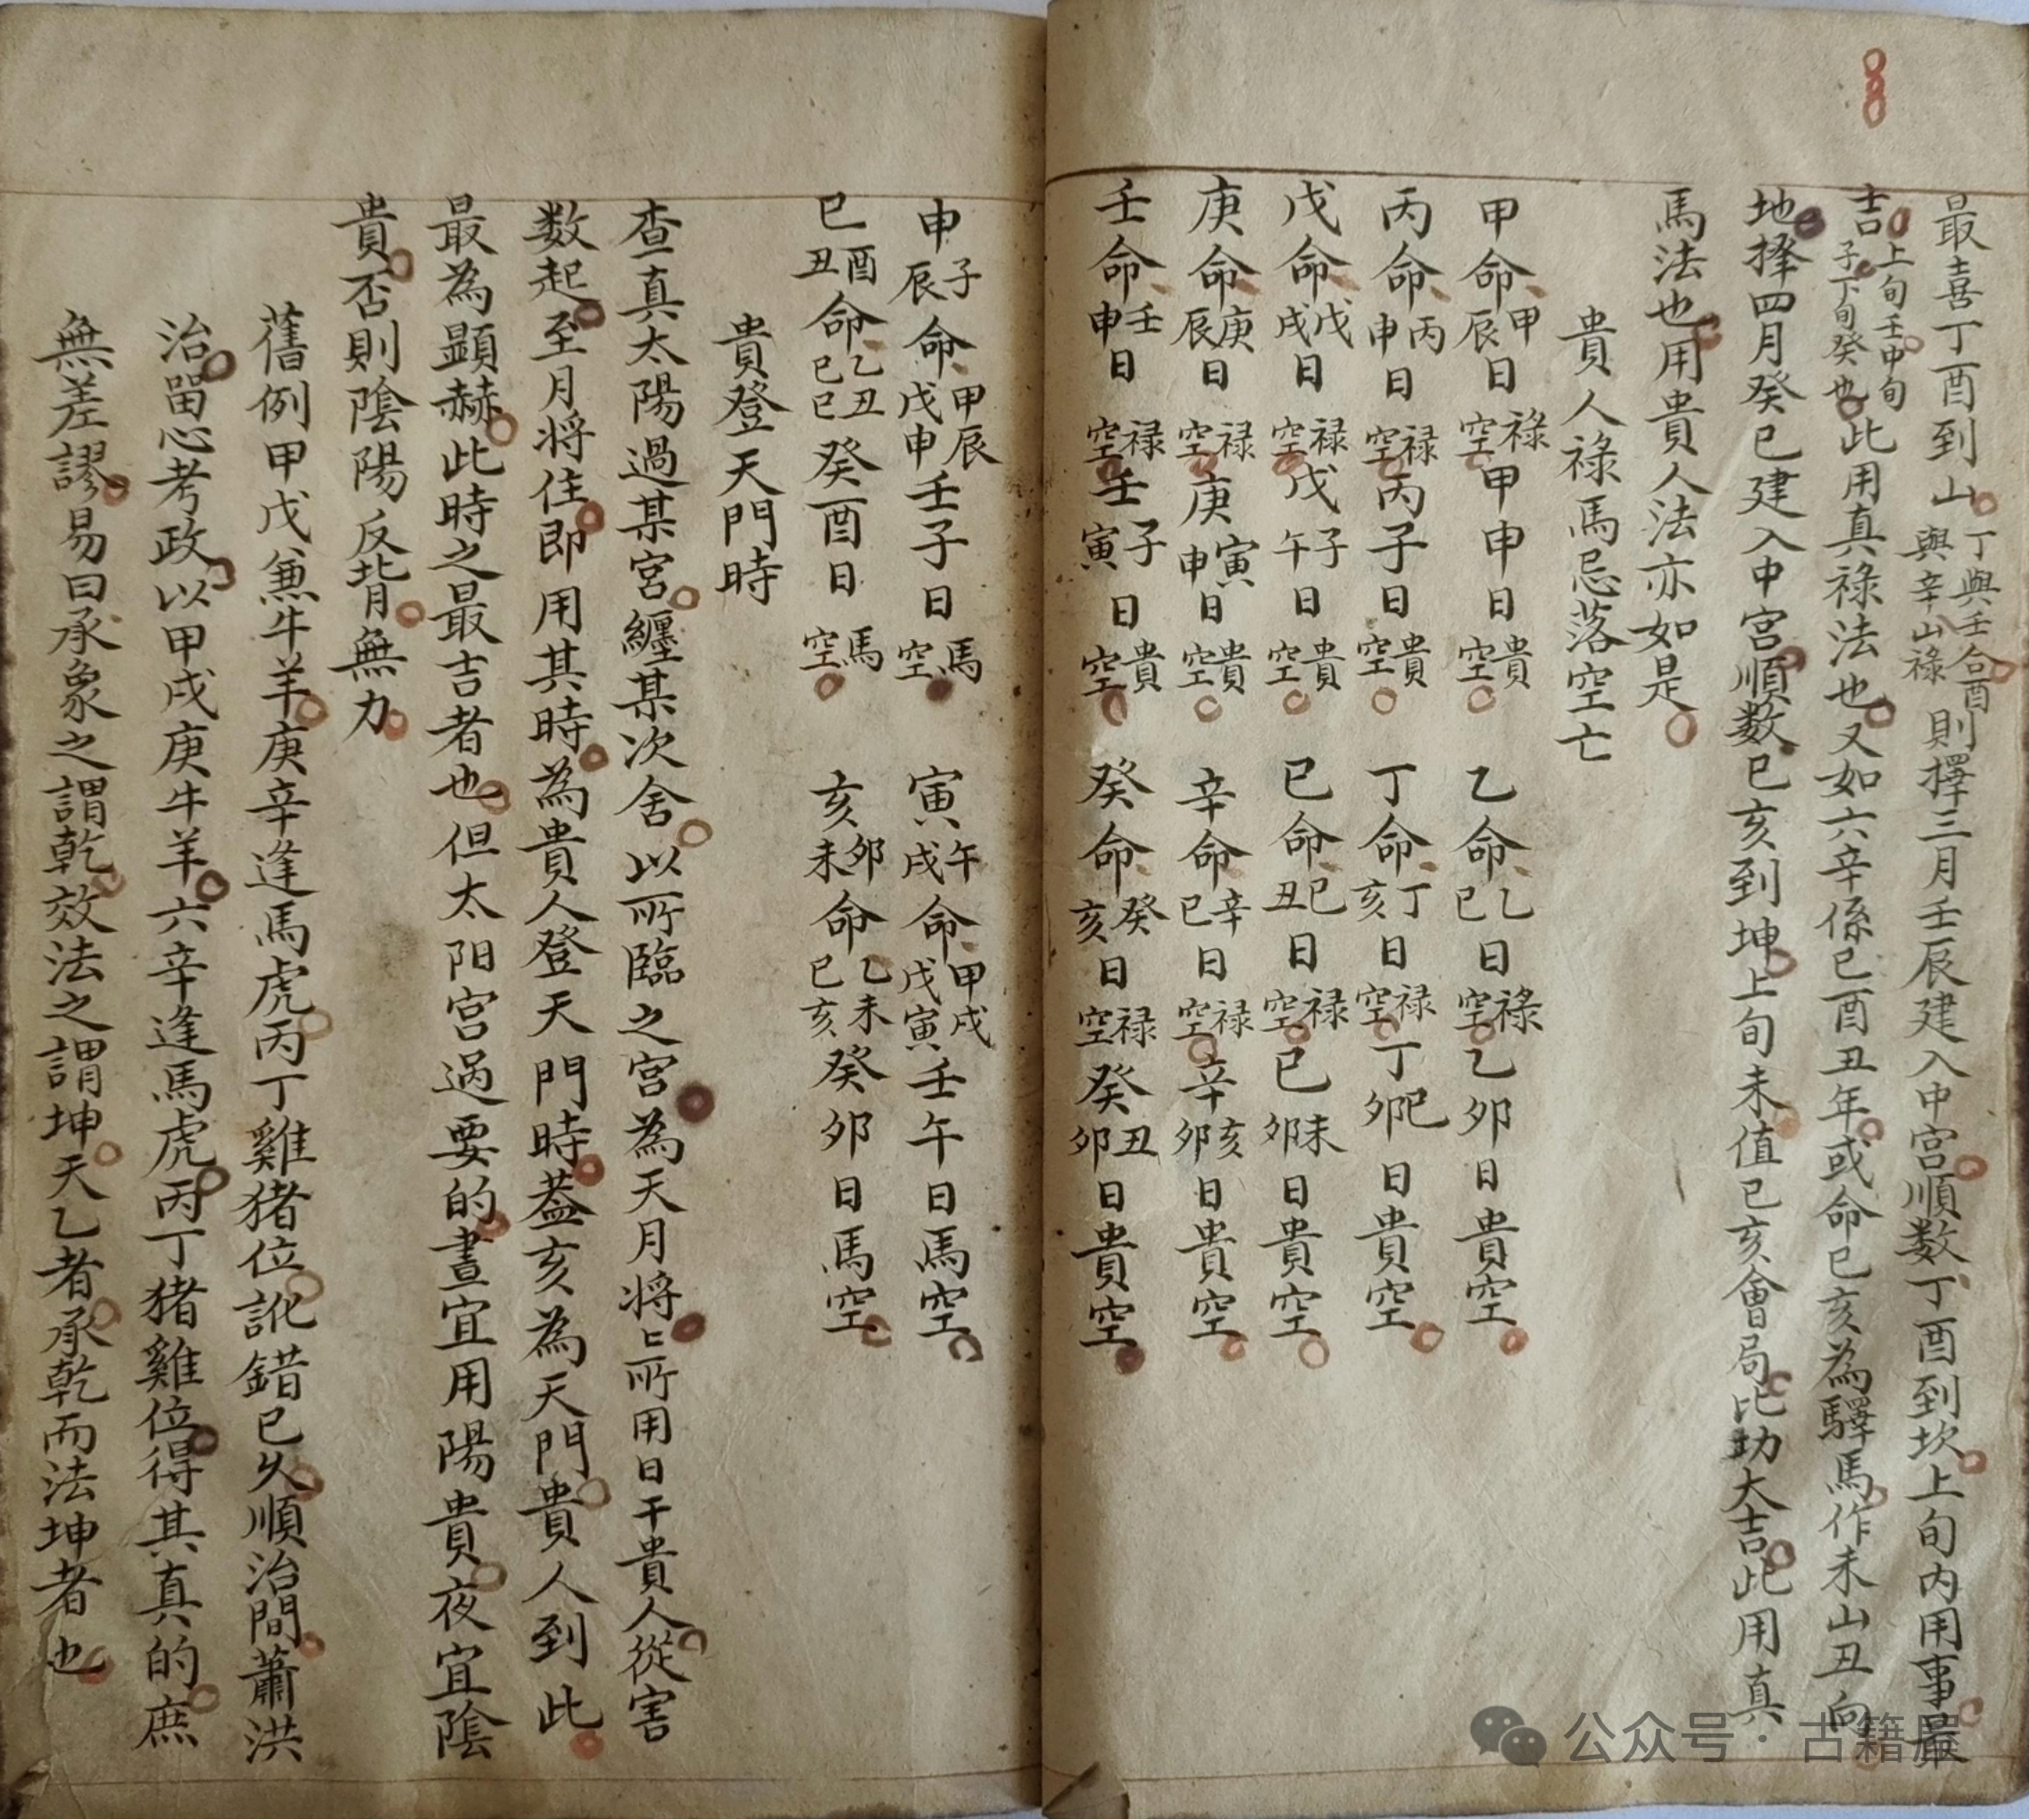 最喜丁酉到山丁與壬合酉與辛山祿則擇三月壬辰建入中宮順数丁酉到坎上旬內用事最
吉上旬壬申旬子下旬癸也此用真祿法也又如六辛係巳酉丑年或命巳亥為驛馬作未山丑向
地擇四月癸巳建入中宮順数巳亥到坤上旬未值巳亥會局比助大吉此用真
馬法也用貴人法亦如是
貴人祿馬忌落空亡
甲命甲辰日禄空甲申日貴空 乙命乙巳日祿空乙卯日貴空
丙命丙申日祿空丙子日貴空 丁命丁亥日祿空丁巳卯日貴空
戊命戊戌日祿空戊子午日貴空 巳命巳丑日祿空巳未卯日貴空
庚命庚辰日祿空庚寅申日貴空 辛命辛巳日祿空辛亥卯日貴空
壬命壬申日祿空壬子寅日貴空 癸命癸亥日祿空癸丑卯日貴空
申子辰命甲辰戊申壬子日馬空 寅午戌命甲戌戊寅壬午日馬空
巳酉丑命乙丑巳巳癸酉日馬空 亥卯未命乙未巳亥癸卯日馬空
貴登天門時
查真太陽過某宮纏某次舍以所臨之宮為天月將上所用日干貴人從害
数起至月将住即用其時為貴人登天門時蓋亥為天門貴人到此
最為顕赫此時之最吉者也但太阳宮过要的晝宜用陽貴夜宜陰
貴否則陰陽反背無力
舊例甲戊兼牛羊庚辛逢馬虎丙丁雞猪位訛錯已久順治間蕭洪
治留心考政以甲戌庚牛羊六辛逢馬虎丙丁猪雞位得其真的庶
無差謬易曰承象之謂乾效法之謂坤天乙者承乾而法坤者也
公众号·古籍屋